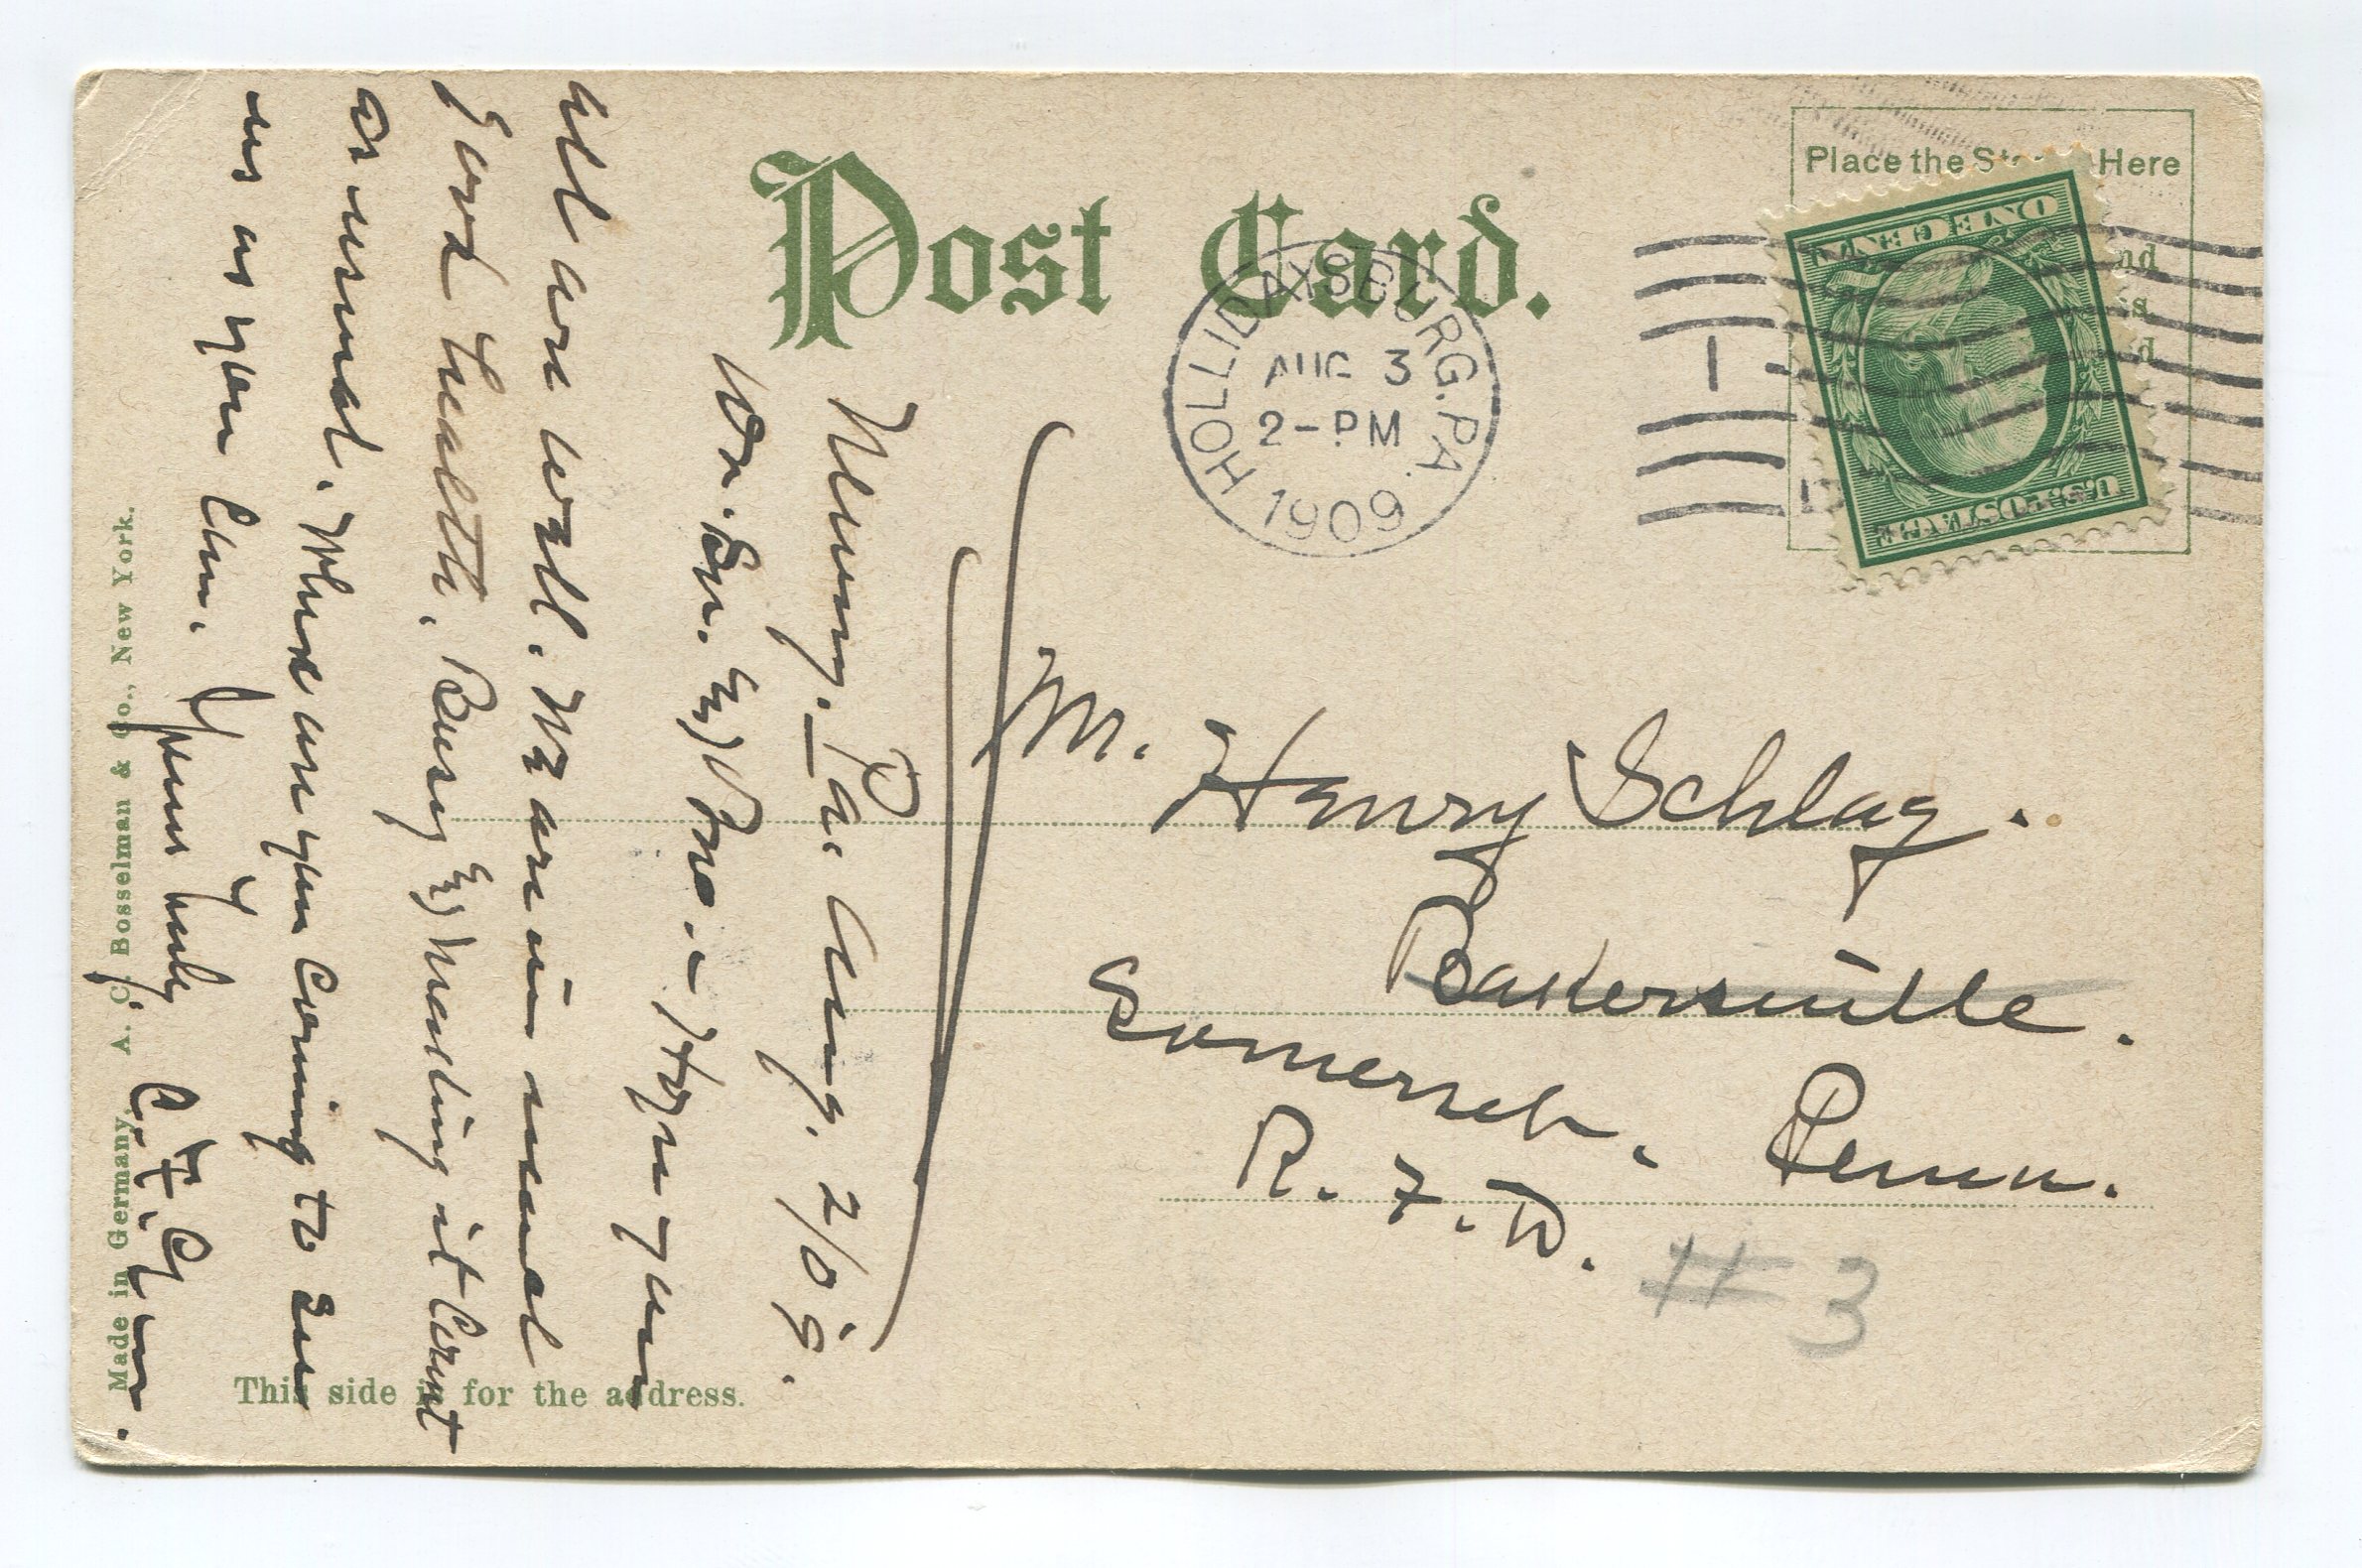 Post Card.
Place the St Here
nd
s
d
HOLLIDAYSBURG. PA.
AUG 3
2-PM
1909
1
ONE CENT
U.S. POSTAGE
M. Henry Schlag.
Bakersville.
Somerset. Penn.
R. F. D.
# 3
Pa. Aug. 2/09.
Hope you
all are well. We are in usual
good health. Busy hauling it
as usual. When are you coming to see
us as you can. Yours Truly
This side is for the address.
Made in Germany, A. C. Bosselman & Co., New York.